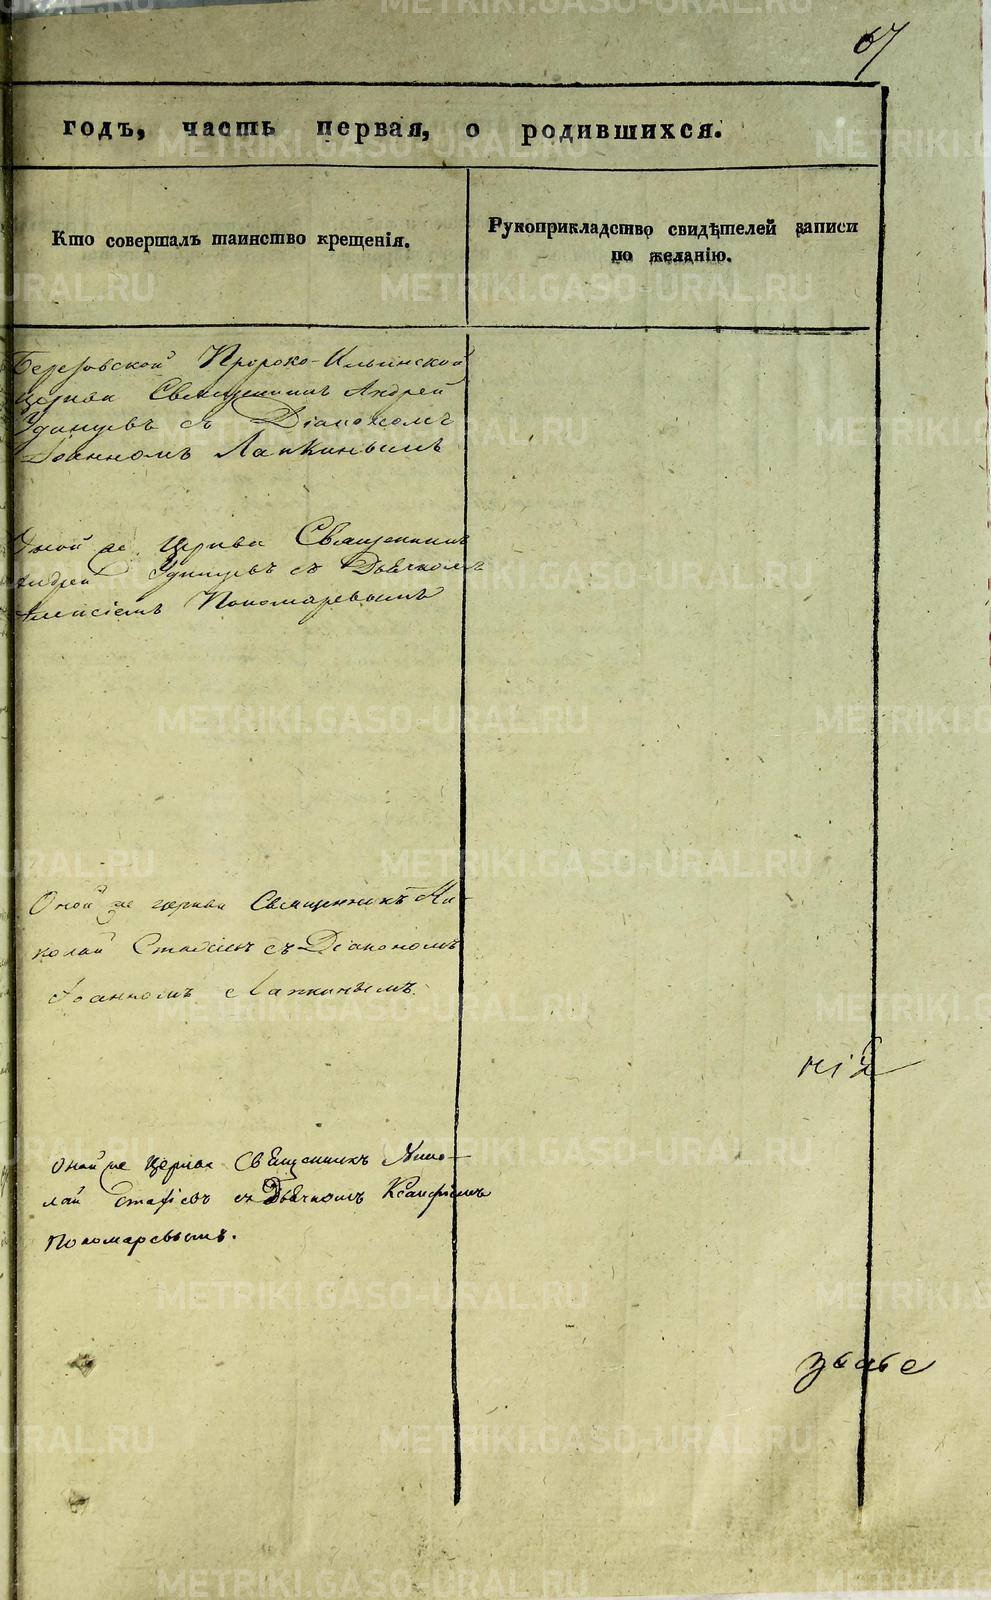 67
годъ, часть первая, о родившихся.
Кто совершалъ таинство крещенія.
Рукоприкладство свидѣтелей записи
по желанію.
Березовской Пророко-Ильинской
церкви Священникъ Андрей
Удинцевъ съ Діакономъ
Іоанномъ Лапкинымъ
Оной же Церкви Священникъ
Андрей Удинцевъ съ Дьячкомъ
Пономаревымъ
Оной же церкви Священникъ Ни-
колай Стафіевъ съ Діакономъ
Іоанномъ Лапкинымъ.
Оной же Церкви Священникъ Нико-
лай Стафіевъ съ Дьячкомъ
Пономаревымъ.
METRIKI.GASO-URAL.RU